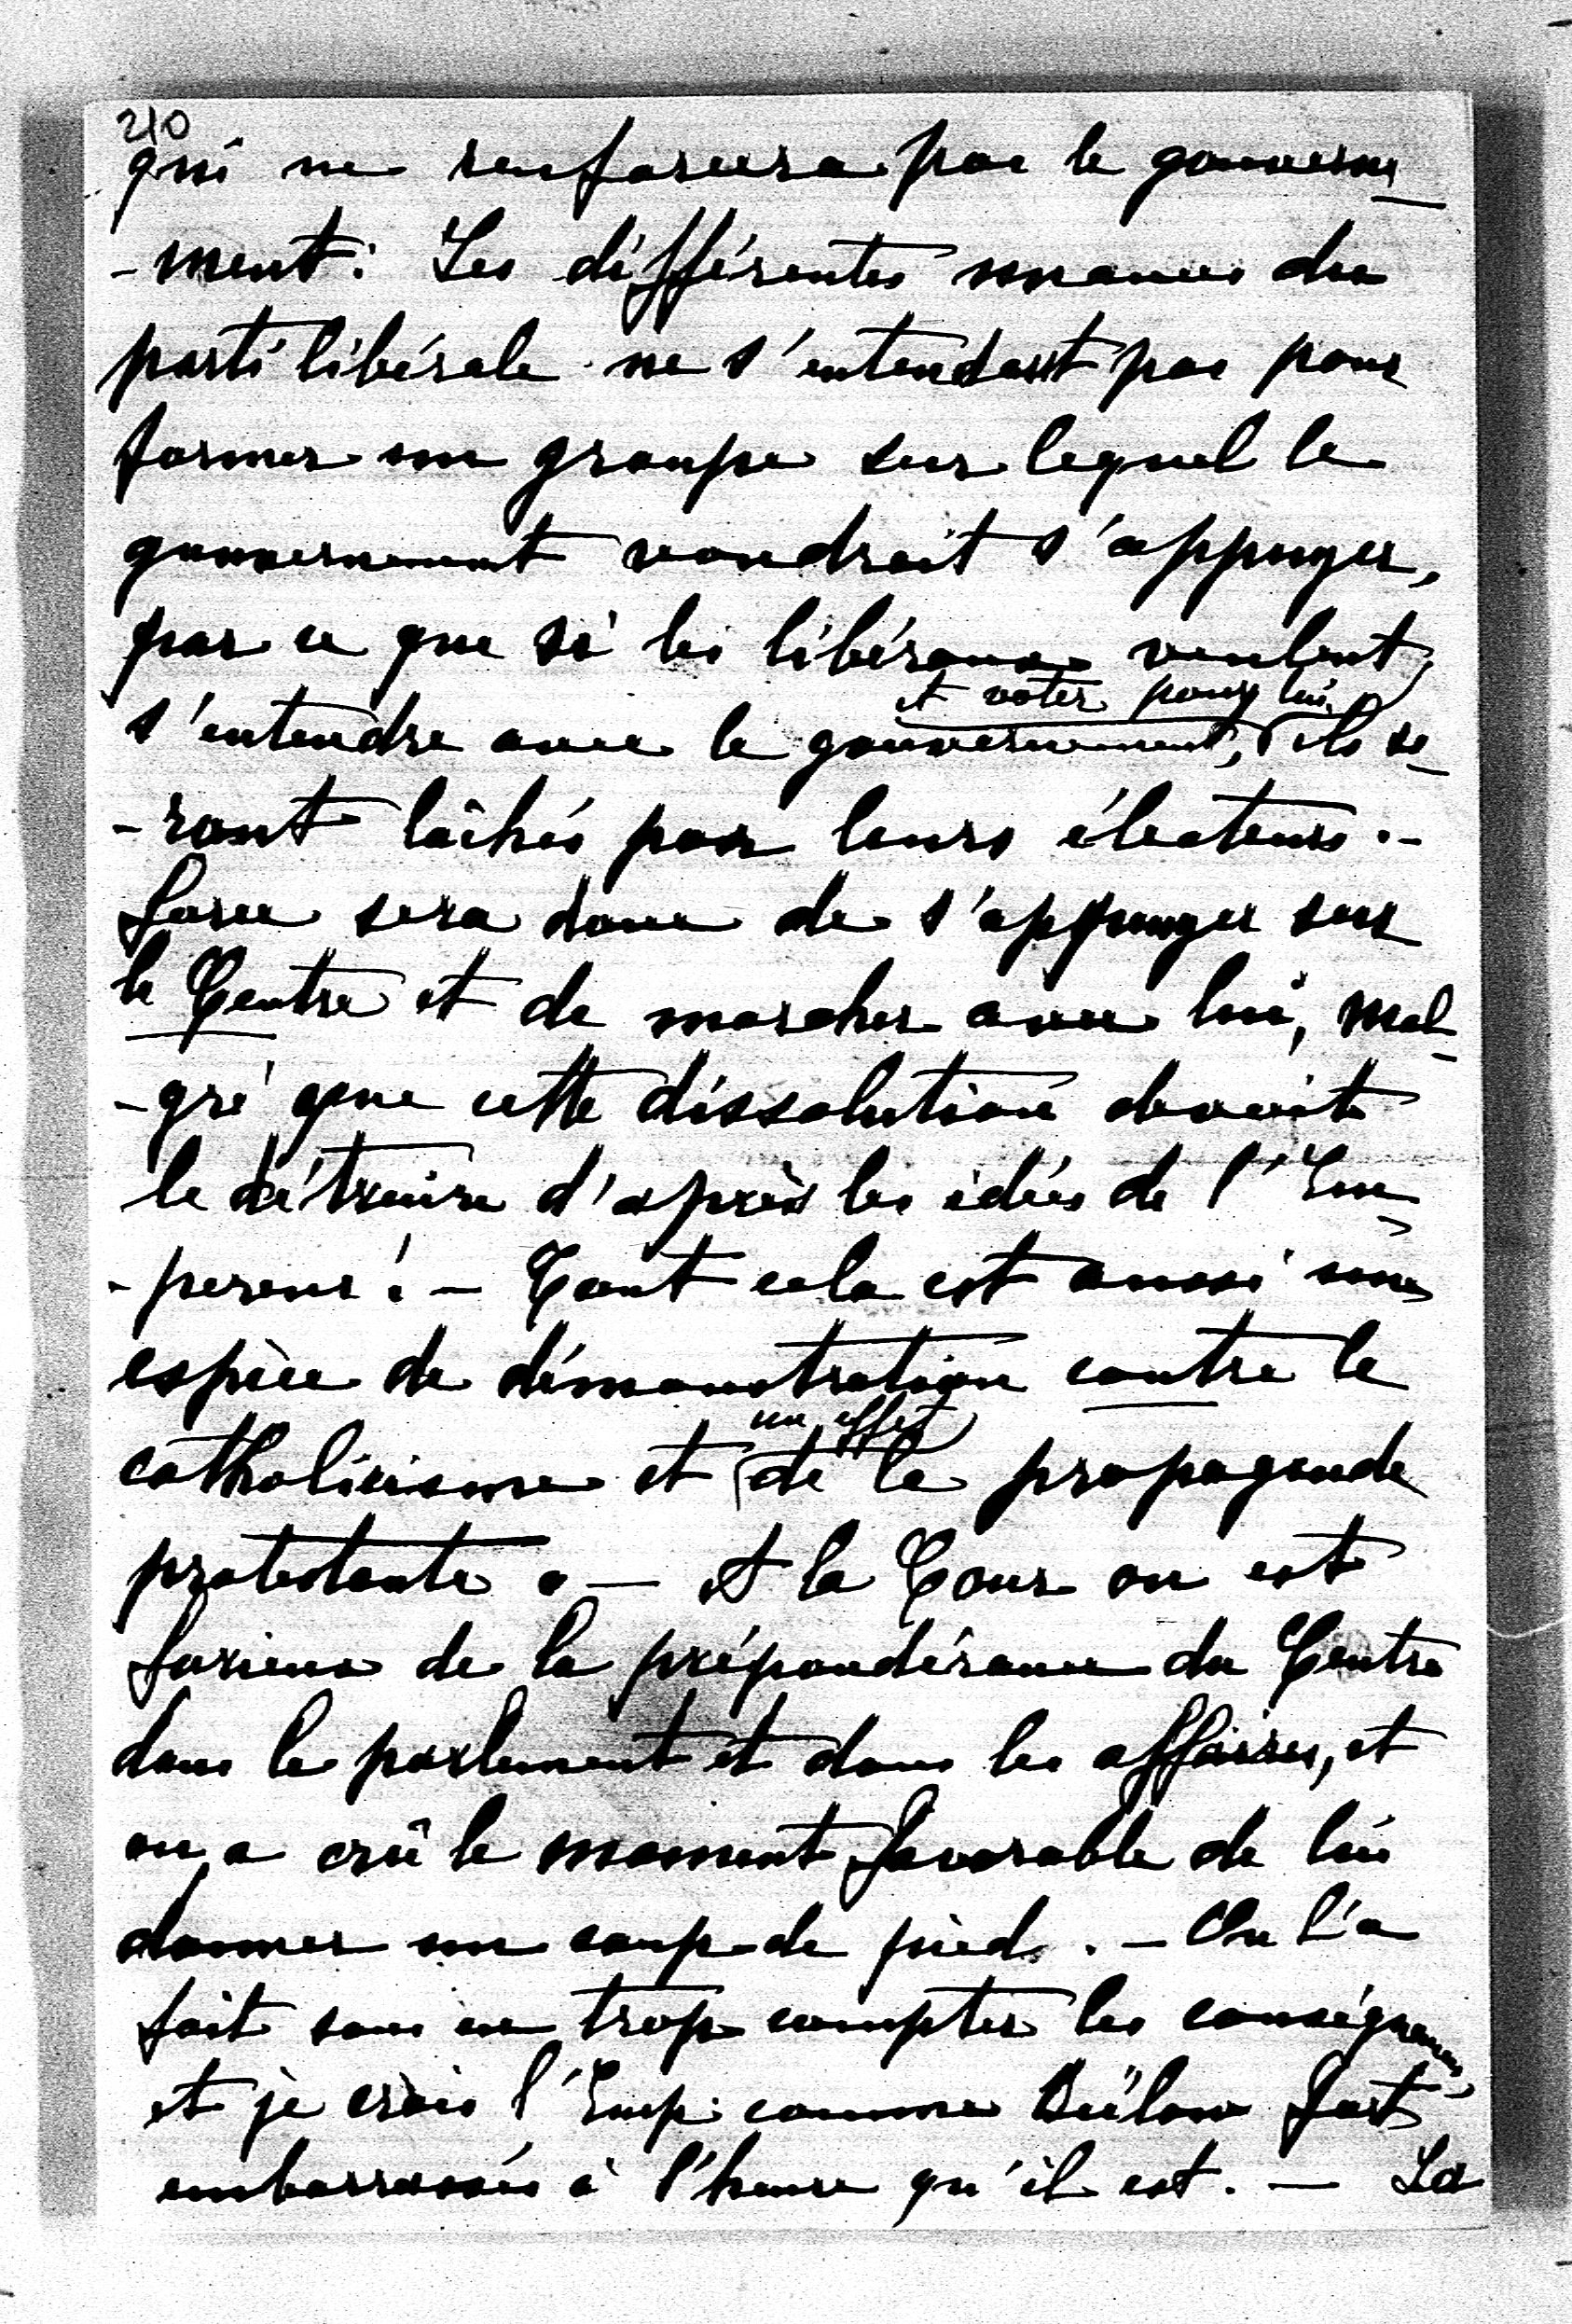 210
qui ne renforcera pas le gouverne
-ment: Les différentes nuances du
parti libérale ne s'entendant pas pour
former un groupe sur lequel le
gouvernement voudrait s'appuyer,
par ce que si les libéraux veulent
et voter pour lui
s'entendre avec le gouvernement, ils se
-ront lâchés par leurs électeurs.-
Force sera donc de s'appuyer sur
le Centre et de marcher avec lui, mal
-gré que cette dissolution devait
le détruire d'après les idées de l'Em
-pereur! - Tout cela est aussi une
espèce de démonstration contre le
un effet
catholicisme et de la propagande
protestante. - A la Cour on est
furieux de la prépondérance du Centre
dans le parlement et dans les affaires, et
on a crû le moment favorable de lui
donner un coup de pied. - On l'a
fait sans en trop compter les conséquences
et je crois l'Emp: comme Bülow fort
embarrassés à l'heure qu'il est. - La